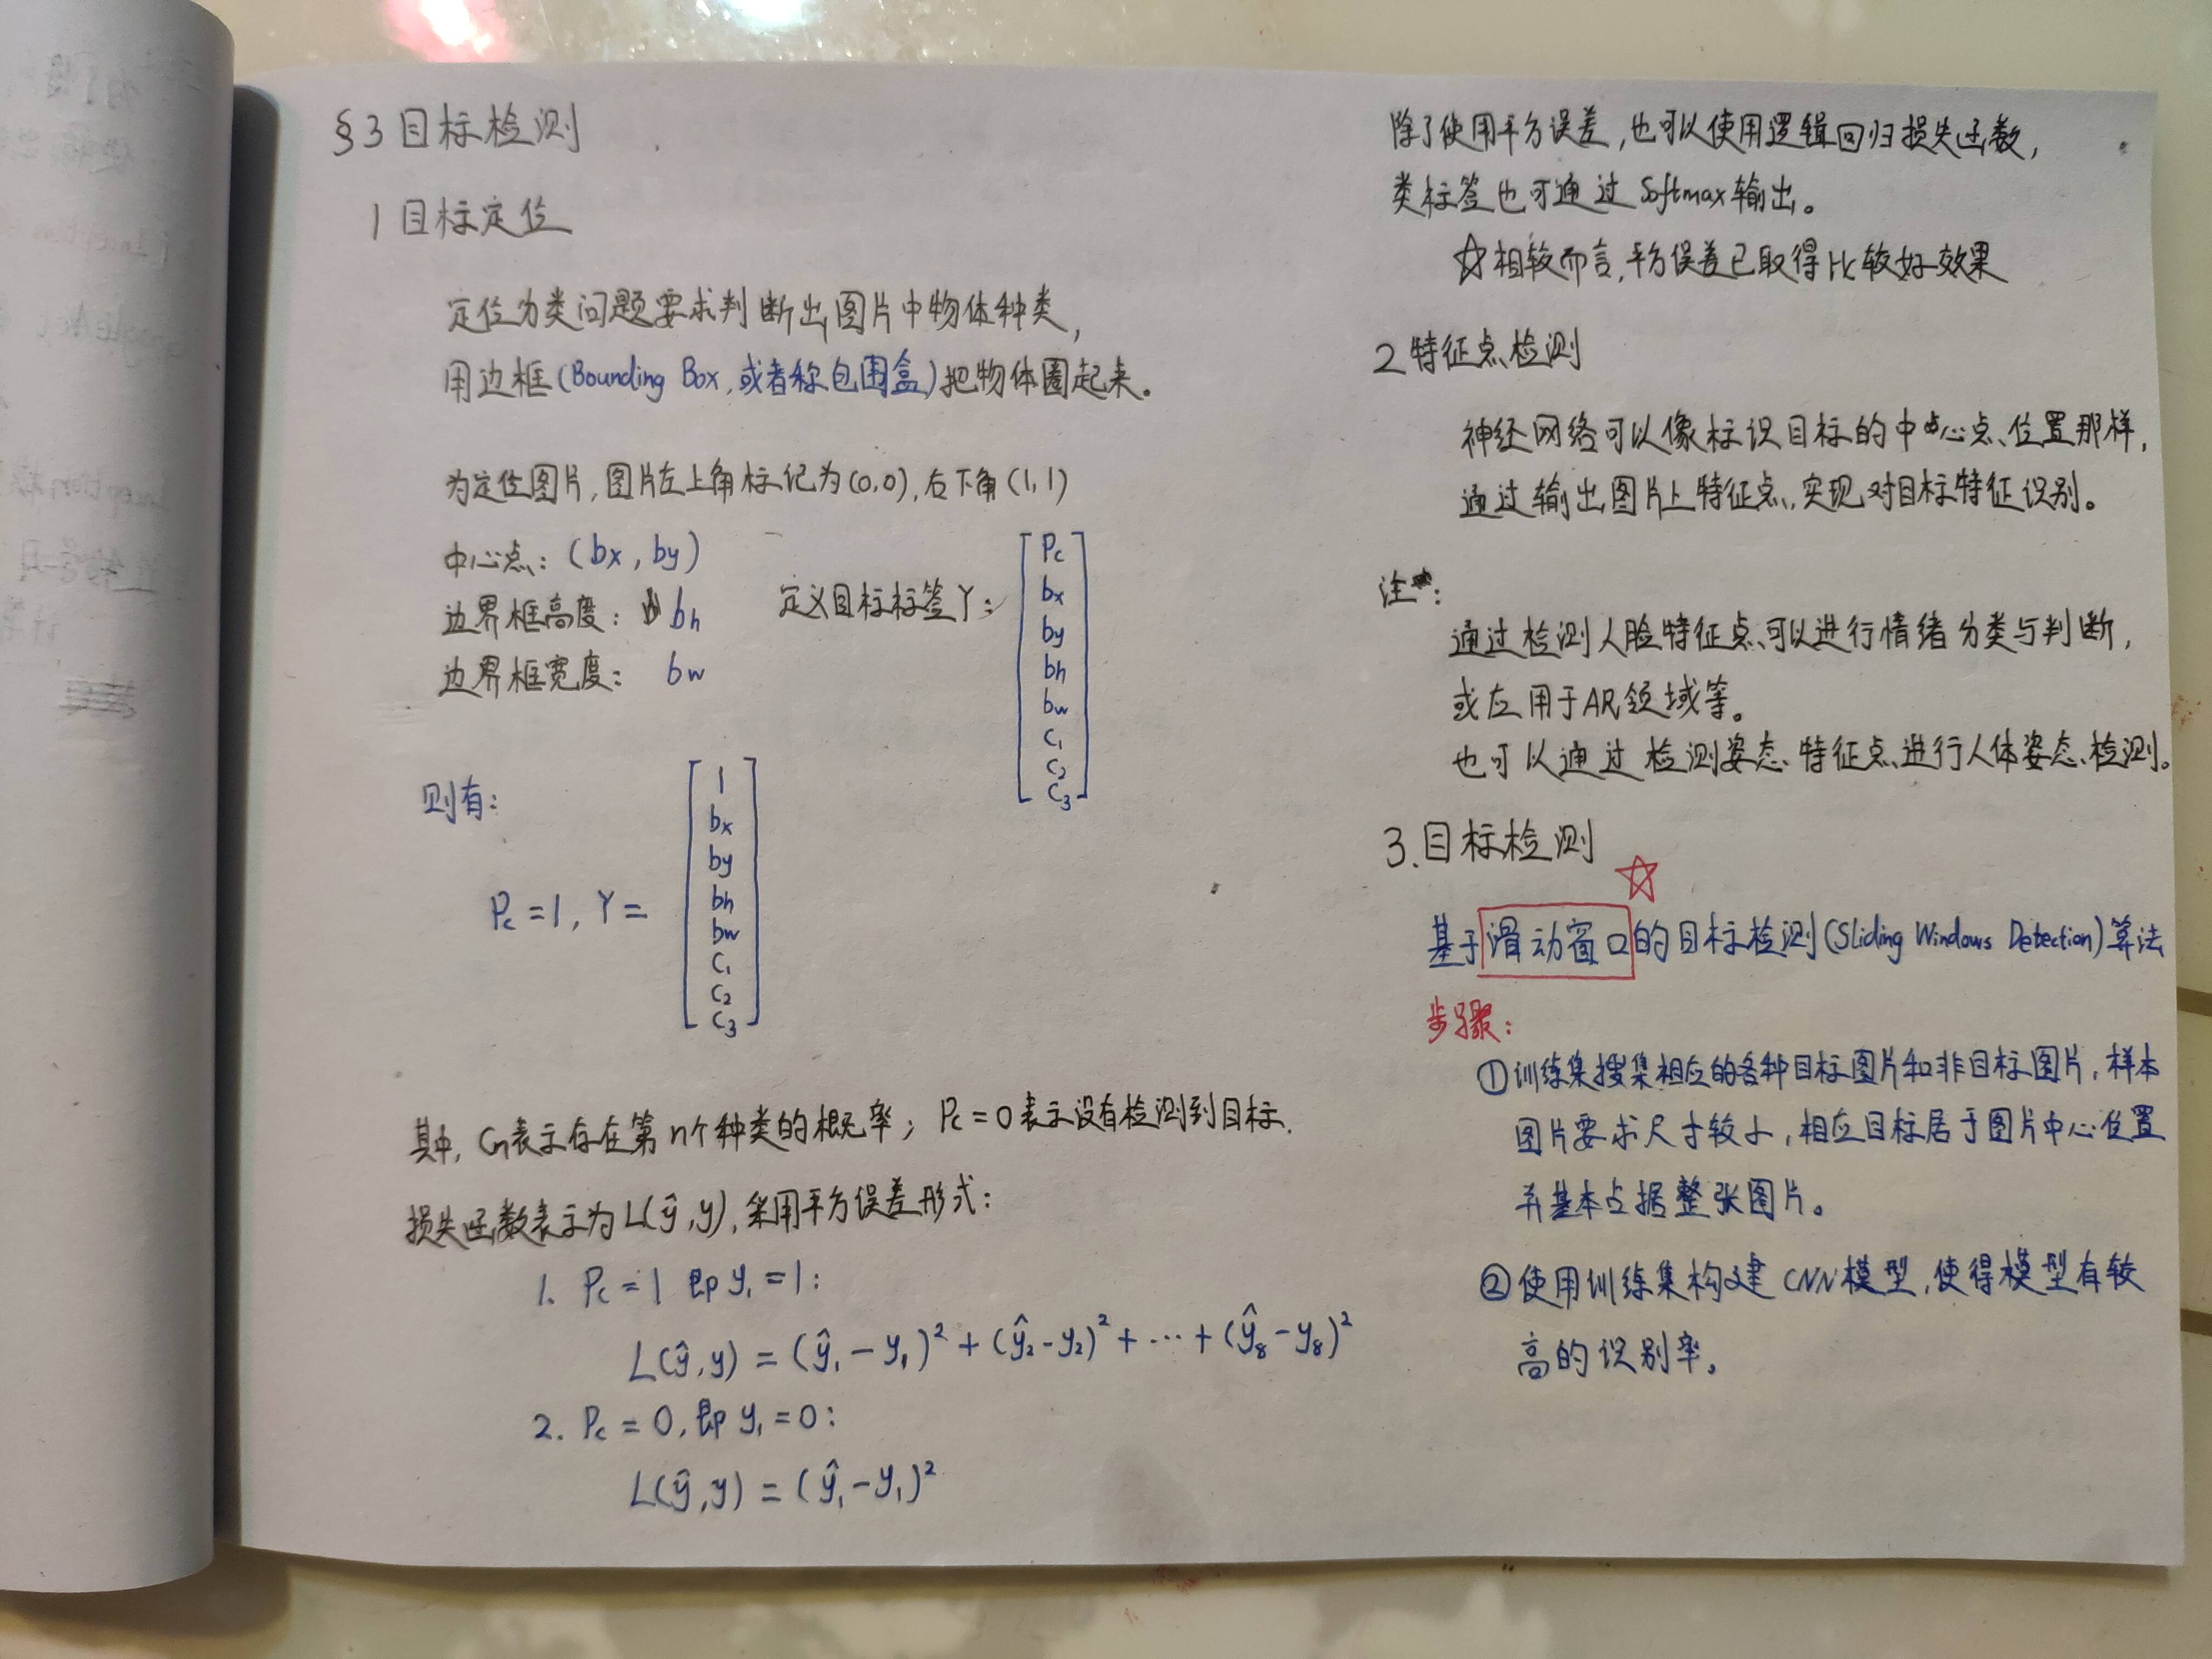 §3 目标检测
1 目标定位
定位分类问题要求判断出图片中物体种类,
用边框(Bounding Box,或者称包围盒)把物体圈起来。
为定位图片,图片左上角标记为(0,0),右下角(1,1)
中心点:(bx, by)
边界框高度: bh
边界框宽度: bw
定义目标标签Y:
Pc
bx
by
bh
bw
C1
C2
C3
则有:
Pc=1, Y=
1
bx
by
bh
bw
C1
C2
C3
其中, Cn表示存在第n个种类的概率; Pc=0表示没有检测到目标.
损失函数表示为L(ŷ,y),采用平方误差形式:
1. Pc=1 即 y₁=1:
L(ŷ,y) = (ŷ₁-y₁)² + (ŷ₂-y₂)² + ⋯ + (ŷ₈-y₈)²
2. Pc=0,即 y₁=0:
L(ŷ,y) = (ŷ₁-y₁)²
除了使用平方误差,也可以使用逻辑回归损失函数,
类标签也可通过Softmax输出。
☆相较而言,平方误差已取得比较好效果
2 特征点检测
神经网络可以像标识目标的中心点位置那样,
通过输出图片上特征点,实现对目标特征识别。
注:
通过检测人脸特征点可以进行情绪分类与判断,
或应用于AR领域等。
也可以通过检测姿态特征点进行人体姿态检测。
3.目标检测
☆
基于滑动窗口的目标检测(Sliding Windows Detection)算法
步骤:
①训练集搜集相应的各种目标图片和非目标图片,样本
图片要求尺寸较小,相应目标居于图片中心位置
并基本占据整张图片。
②使用训练集构建CNN模型,使得模型有较
高的识别率。